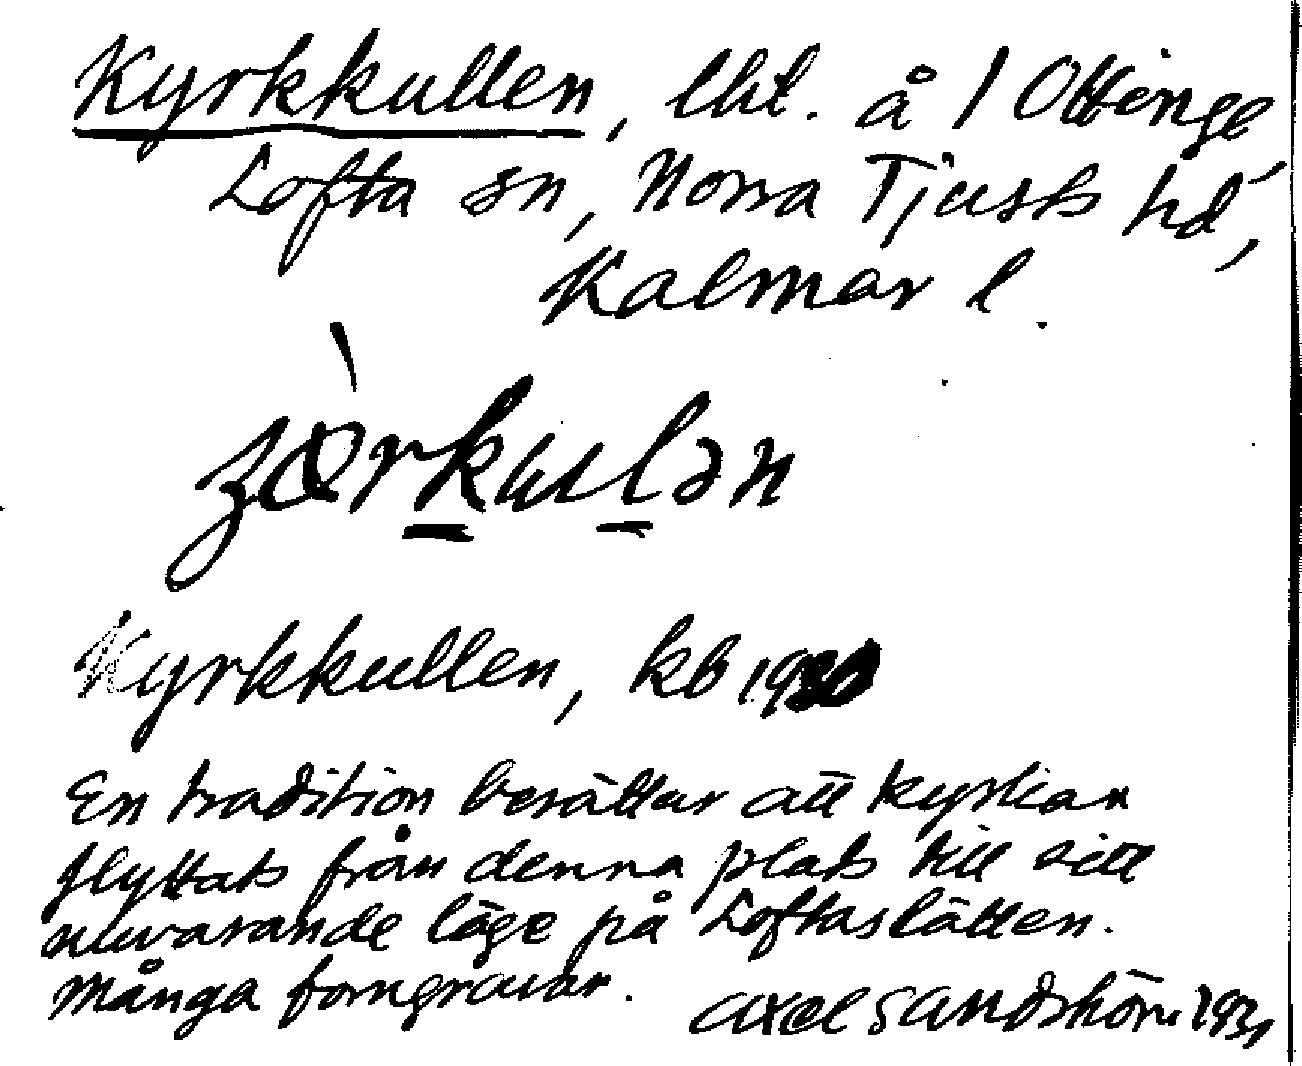 Kyrkkullen, lht. å 1 Ottinge,
Lofta sn, Norra Tjusts hd,
Kalmar l.
Kyrkkullen, kb
En tradition berättar att kyrkan
flyttats från denna plats till sitt
nuvarande läge på Loftaslätten.
Många forngravar. Axel Sandström 1931